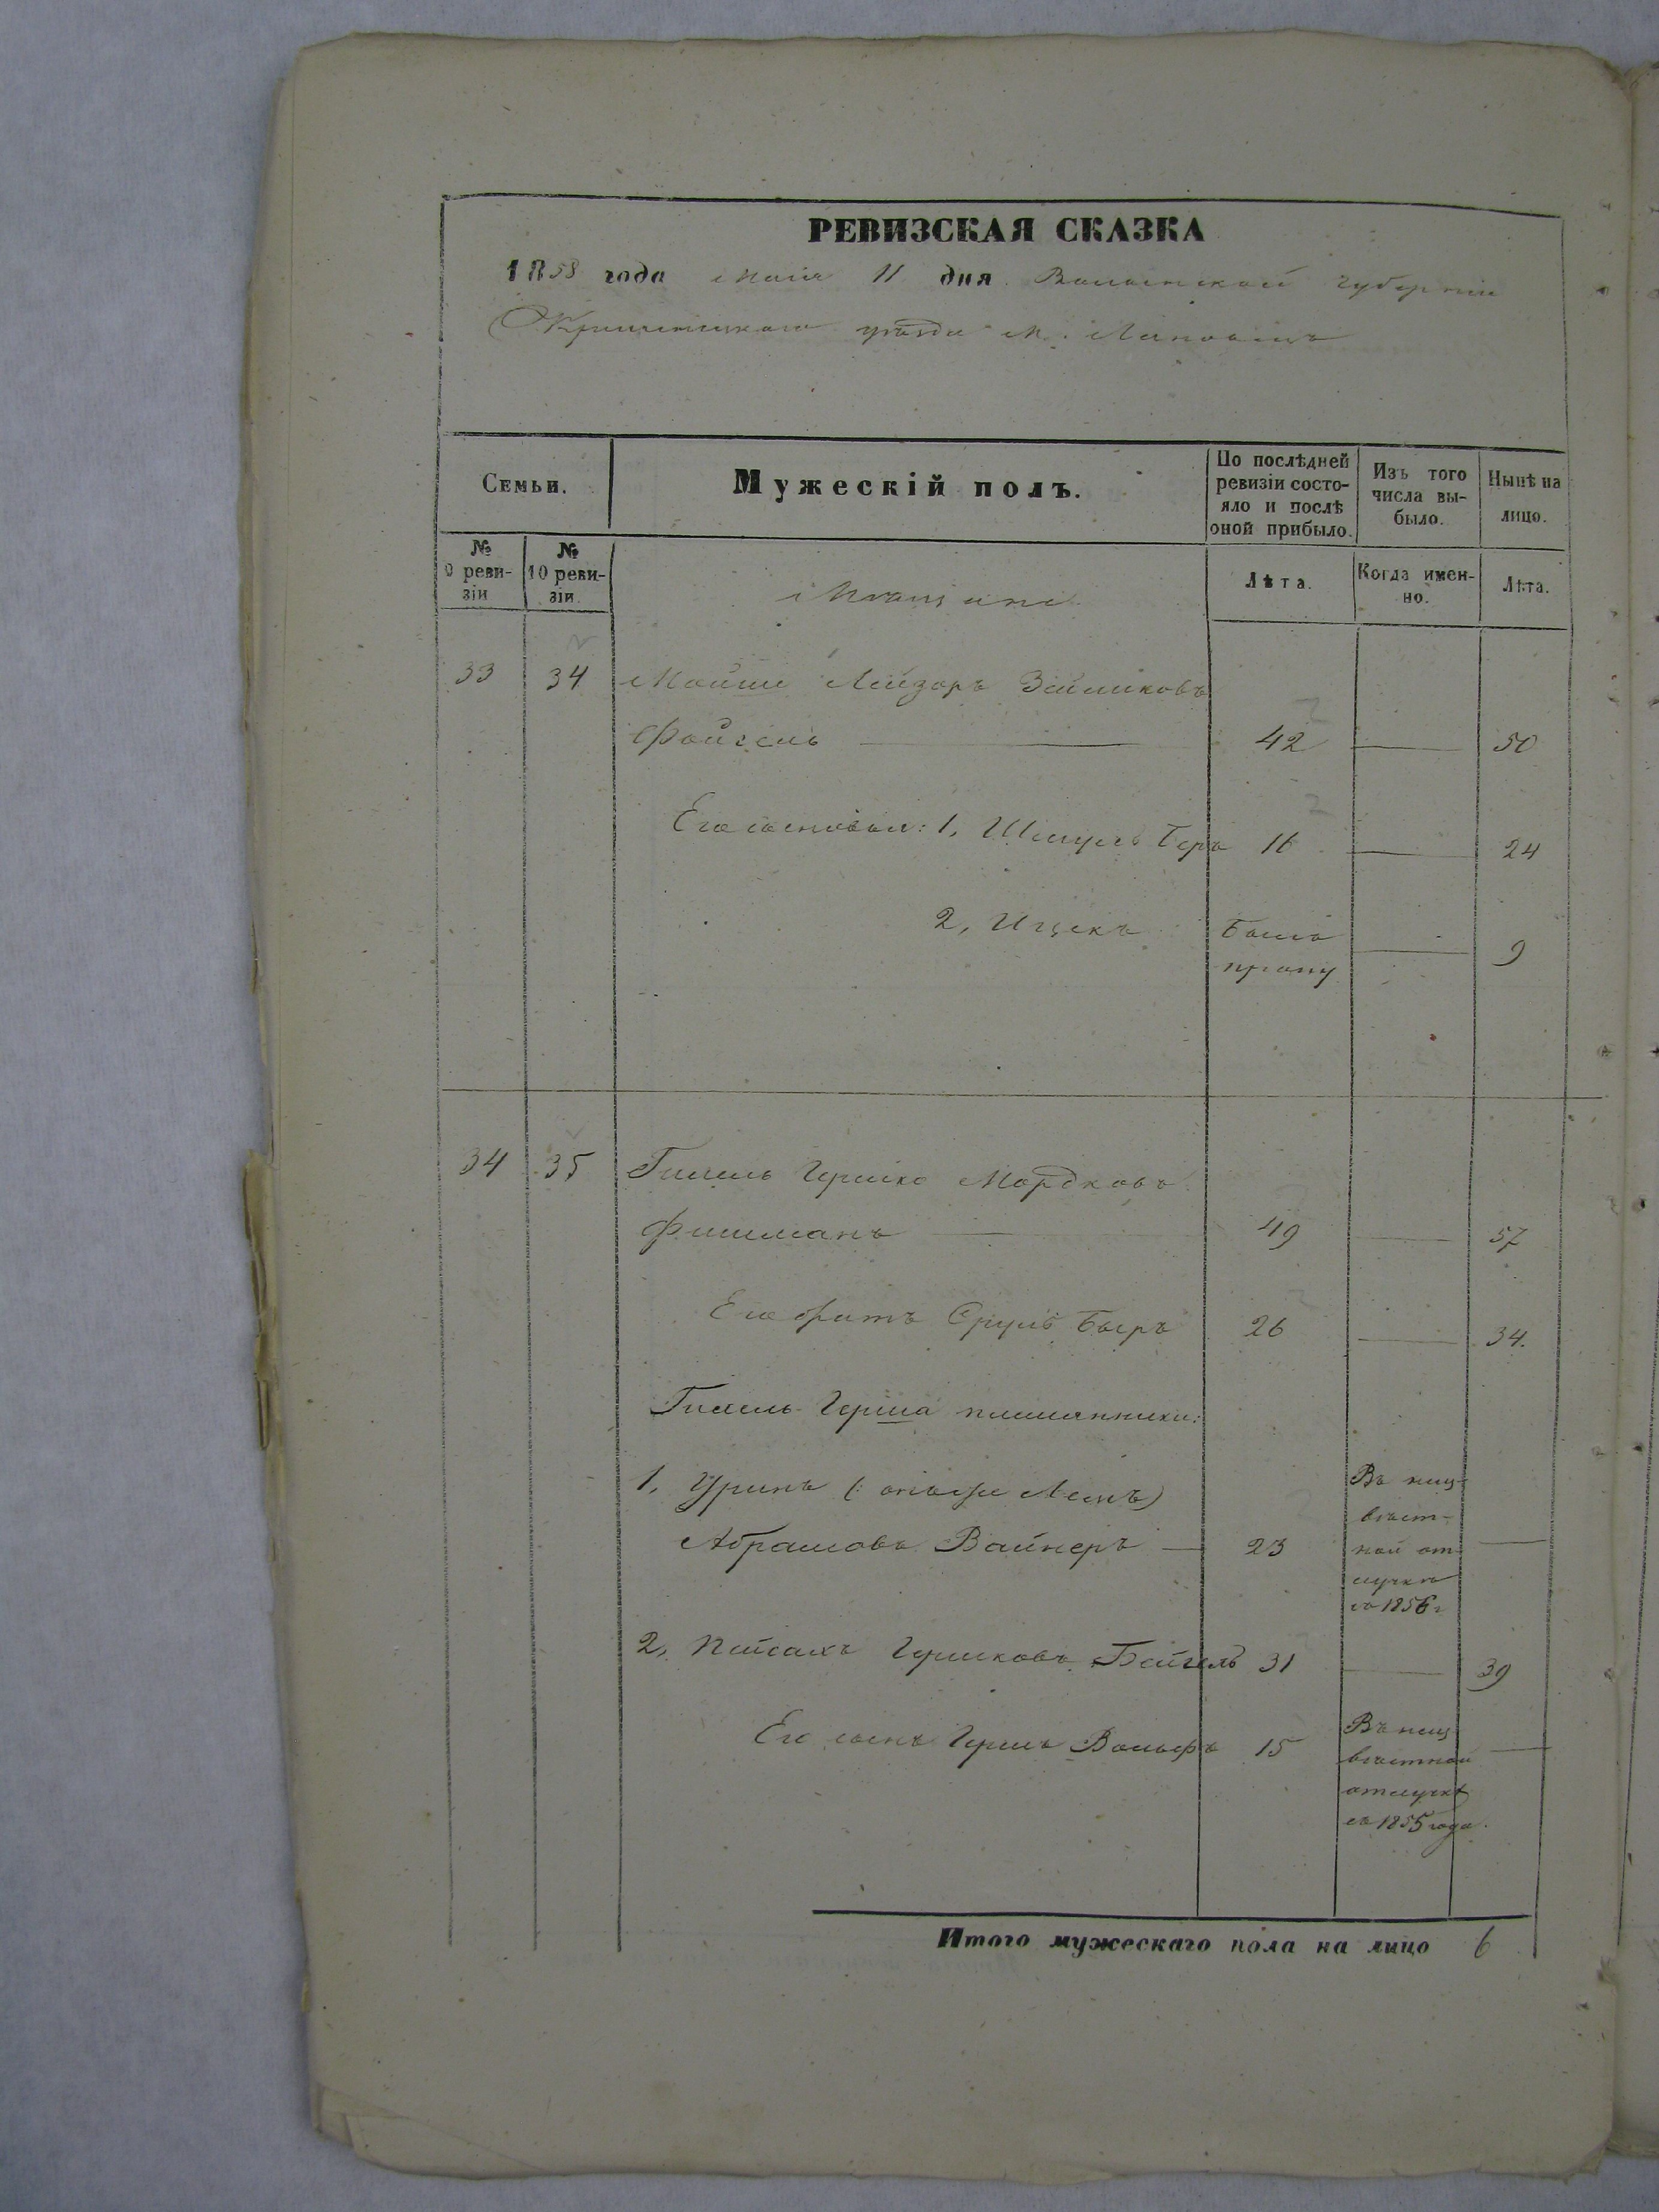 РЕВИЗСКАЯ СКАЗКА
1858 года Маія 11 дня Волынской губерніи
Кременецкаго уѣзда М. Лановецъ
Семьи.
Мужескій полъ.
По послѣдней ревизіи состо-
яло и послѣ
оной прибыло.
Изъ того
числа вы-
было.
Нынѣ на
лицо.
№
9 реви-
зіи
№
10 реви-
зіи.
Мѣщане
Лѣта.
Когда имен-
но.
Лѣта.
33 34 Мойше Лейзоръ Зейликовъ
Файгель 42 50
Его сыновья: 1, Шмуль Беръ 16 24
2, Ицекъ Былъ
пропу 9
34 35 Гилель Гершко Мордковъ
Фишманъ 49 57
Его братъ Сруль Беръ 26 34.
Гилель Герша племянники:
1, (: онъ же
Абрамовъ Вайнеръ 23
Въ неиз-
вѣст-
ной от-
лучкѣ
съ 1856 г
2, Пейсахъ Гершковъ Бейгель 31 39
Его сынъ Гершъ Вольфъ 15
Въ неиз-
вѣстной
отлучкѣ
съ 1855 года.
Итого мужескаго пола на лицо 6